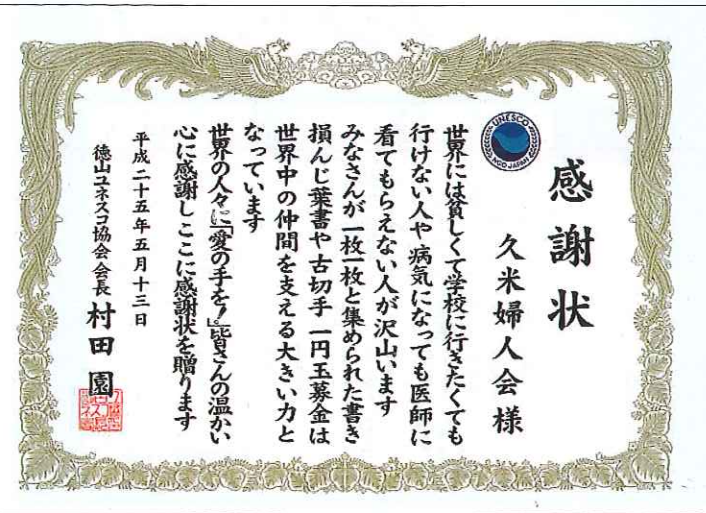 感謝状
久米婦人会様
UNESCO
NGO JAPAN
世界には貧しくて学校に行きたくても
行けない人や病気になっても医師に
看てもらえない人が沢山います
みなさんが一枚一枚と集められた書き
損んじ葉書や古切手一円玉募金は
世界中の仲間を支える大きい力と
なっています
世界の人々に「愛の手を!」皆さんの温かい
心に感謝しここに感謝状を贈ります
平成二十五年五月十三日
徳山ユネスコ協会会長 村田園